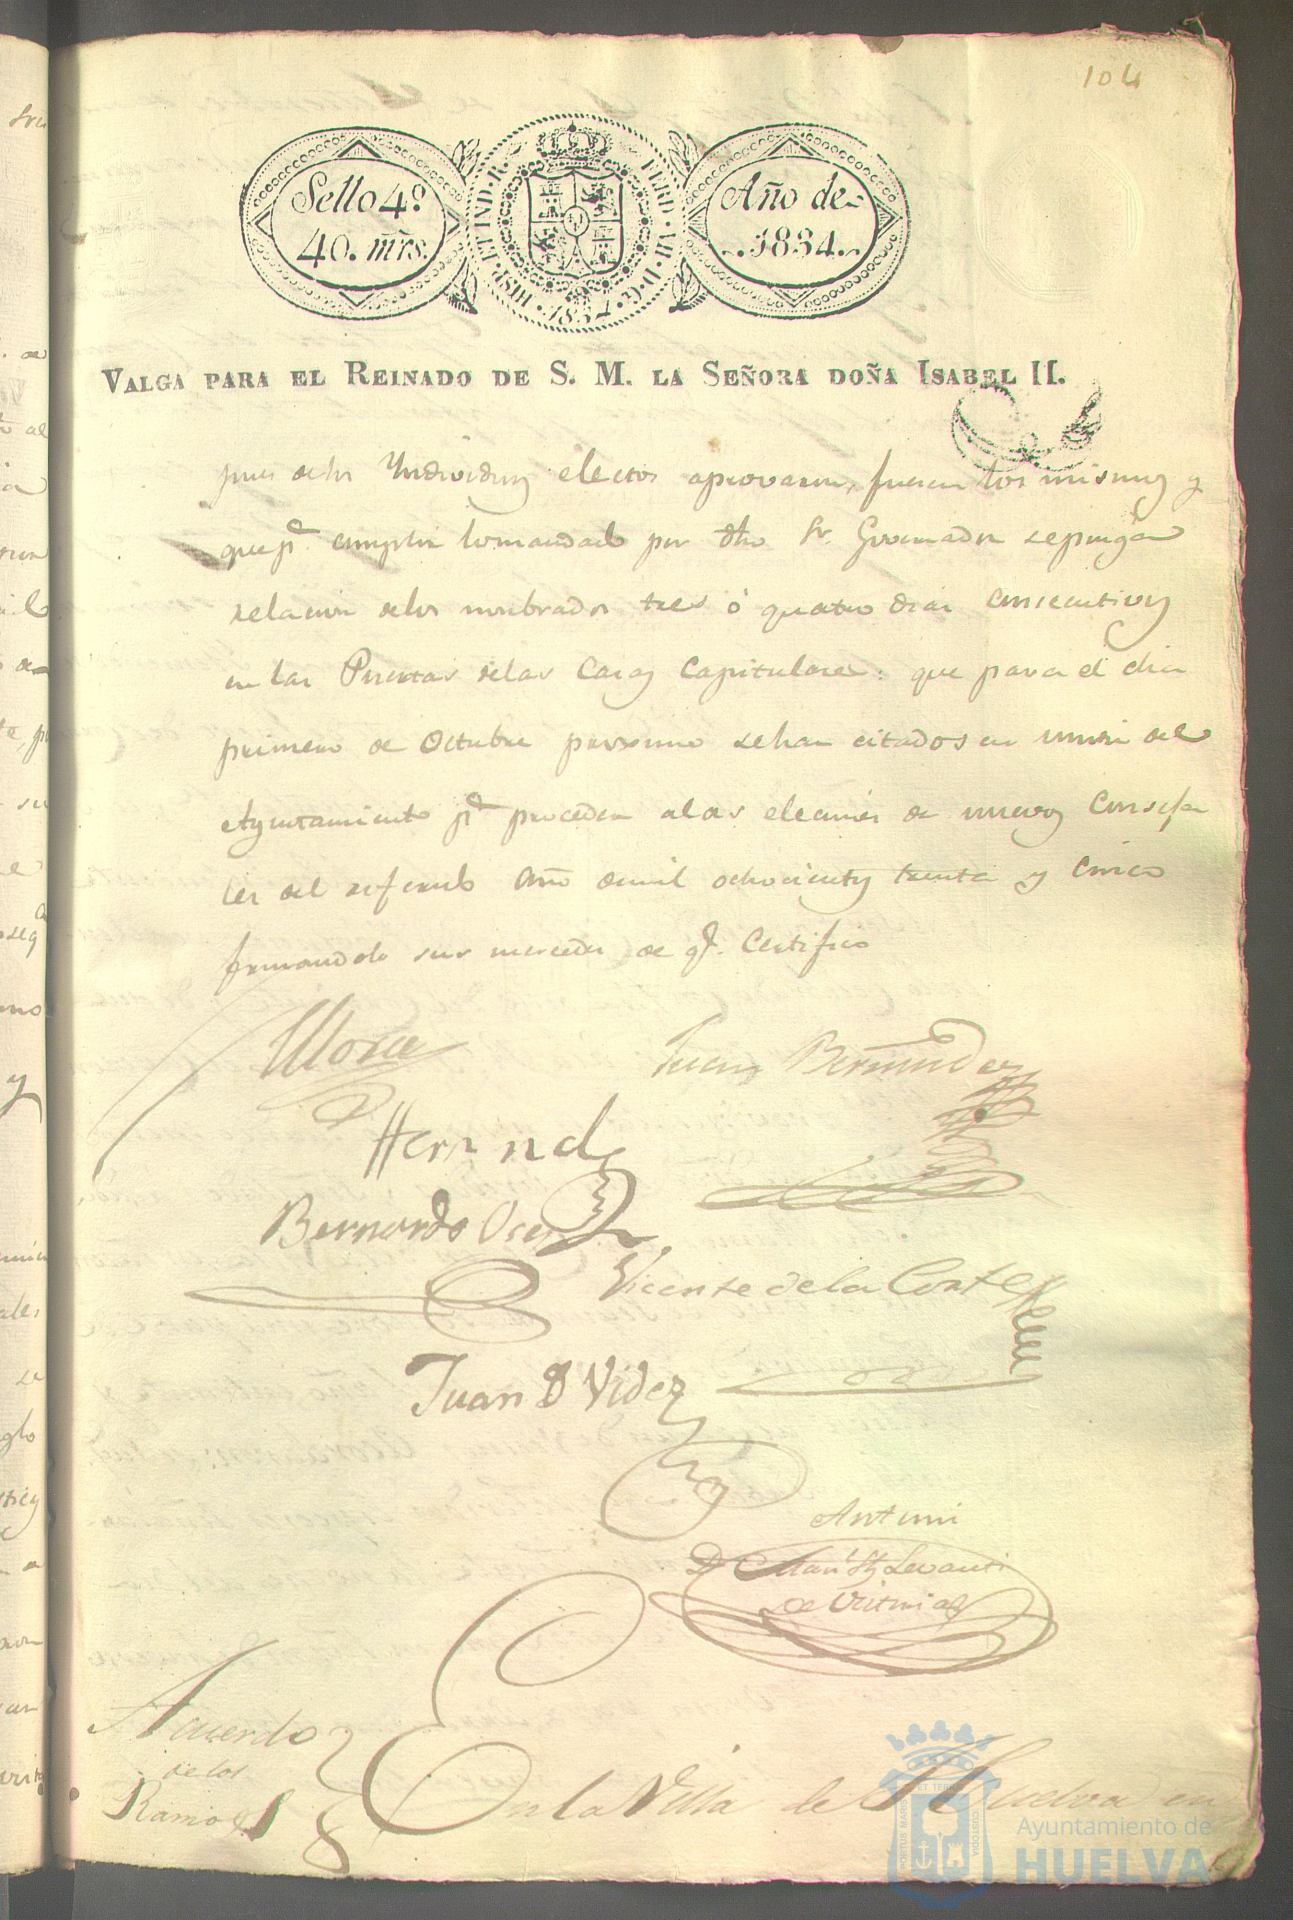 104
Sello 4º.
40. mrs.
HISP. ET IND. R. FERD. VII. D. G. 1834
Año de
1834.
VALGA PARA EL REINADO DE S. M. LA SEÑORA DOÑA ISABEL II.
pues delos Yndividuos electos aprovaron, fueran los mismos y
que pª. cumplir lo mandado por dho Sr. Governador se ponga
relacion delos nombrados tres ó quatro dias consecutivos
en las Puertas delas Casas Capitulares: que para el dia
primero de Octubre proximo sehan citados en union del
Ayuntamiento pª proceder alas elecciones de nuevos Conseja
les del referido año demil ochocientos treinta y cinco
firmandolo sus mercedes de qe. Certifico
Mora
Juan Bermudez
Hernandz
Bernardo
Vicente de la Corte
Juan D Videz
Antemi
D
de
Acuerdo
de los
Ramos
En la Villa de Huelva en
PORTUS MARIS ET TERRE CUSTODIA
Ayuntamiento de
HUELVA